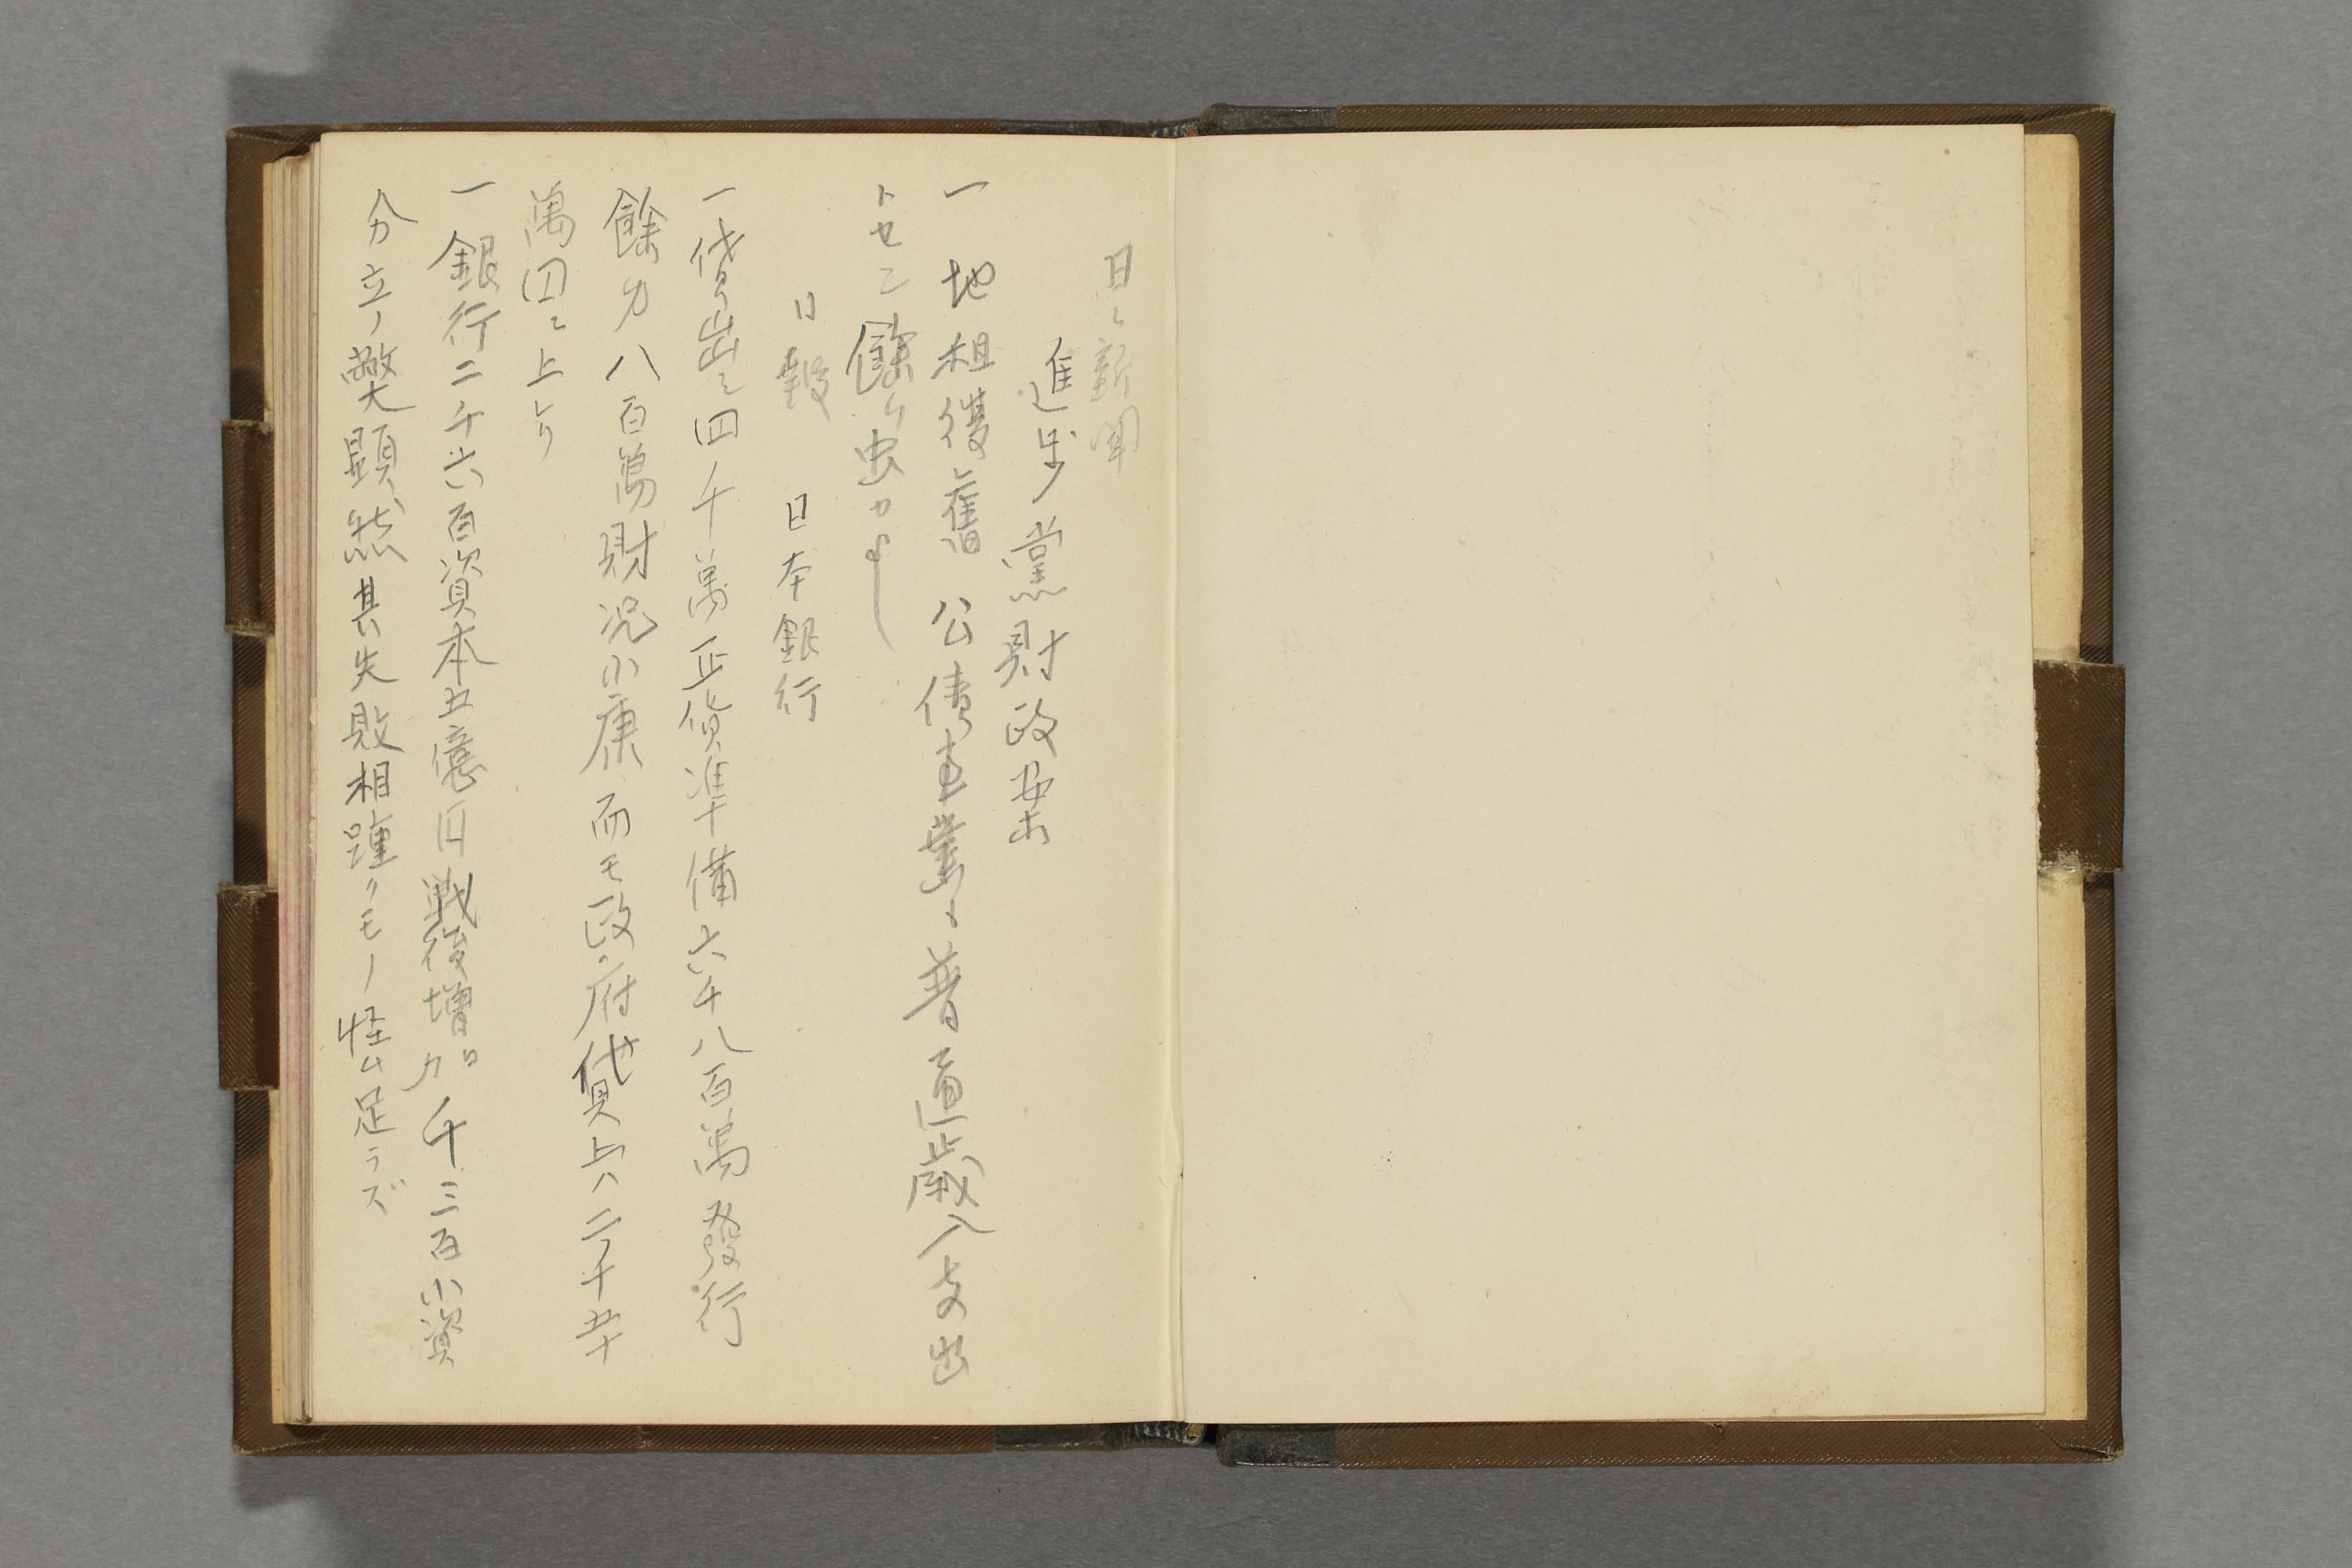 日々新聞
進歩党財政案
一 地租復舊 公債事業ヲ普通歳入支出
トセン 餘り虫カ
日報 日本銀行
一貸出シ四千萬正貨準備六千八百萬發行
餘力八百萬財況小康 而モ政府貸上ハ二千五十
萬円ニ上レリ
一銀行二千六百資本五億円戦後増加千三百小資
分立ノ弊顕然其失敗相踵クモノ怪ムニ足ラズ